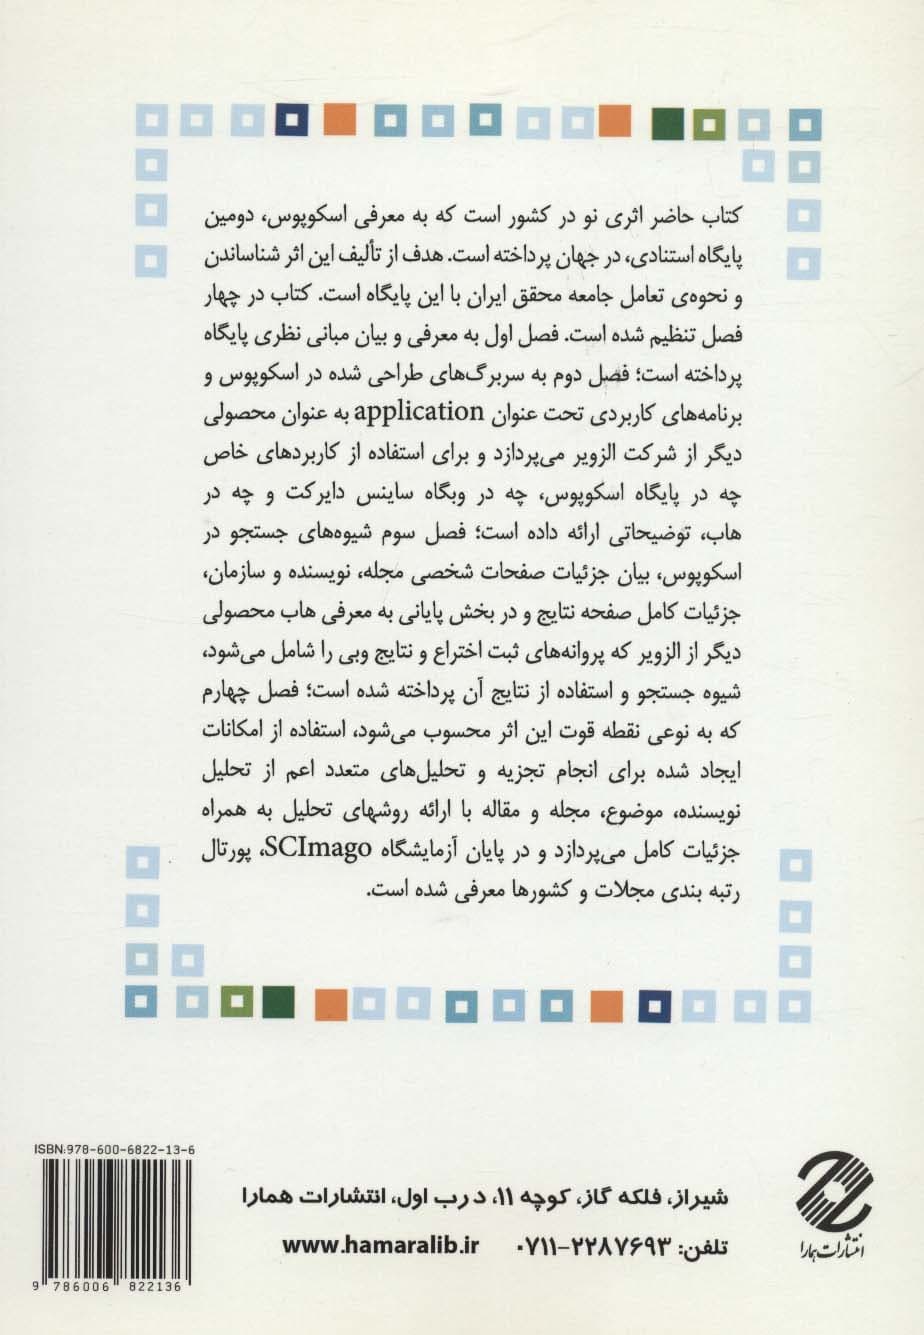 کتاب حاضر اثری نو در کشور است که به معرفی اسکوپوس، دومین
پایگاه استنادی، در جهان پرداخته است. هدف از تألیف این اثر شناساندن
و نحوه‌ی تعامل جامعه محقق ایران با این پایگاه است. کتاب در چهار
فصل تنظیم شده است. فصل اول به معرفی و بیان مبانی نظری پایگاه
پرداخته است؛ فصل دوم به سربرگ‌های طراحی شده در اسکوپوس و
برنامه‌های کاربردی تحت عنوان application به عنوان محصولی
دیگر از شرکت الزویر می‌پردازد و برای استفاده از کاربردهای خاص
چه در پایگاه اسکوپوس، چه در وبگاه ساینس دایرکت و چه در
هاب، توضیحاتی ارائه داده است؛ فصل سوم شیوه‌های جستجو در
اسکوپوس، بیان جزئیات صفحات شخصی مجله، نویسنده و سازمان،
جزئیات کامل صفحه نتایج و در بخش پایانی به معرفی هاب محصولی
دیگر از الزویر که پروانه‌های ثبت اختراع و نتایج وبی را شامل می‌شود،
شیوه جستجو و استفاده از نتایج آن پرداخته شده است؛ فصل چهارم
که به نوعی نقطه قوت این اثر محسوب می‌شود، استفاده از امکانات
ایجاد شده برای انجام تجزیه و تحلیل‌های متعدد اعم از تحلیل
نویسنده، موضوع، مجله و مقاله با ارائه روشهای تحلیل به همراه
جزئیات کامل می‌پردازد و در پایان آزمایشگاه SCImago، پورتال
رتبه بندی مجلات و کشورها معرفی شده است.
ISBN:978-600-6822-13-6
9 786006 822136
شیراز، فلکه گاز، کوچه ۱۱، درب اول، انتشارات همارا
تلفن: ۲۲۸۷۶۹۳-۰۷۱۱ www.hamaralib.ir
انتشارات همارا